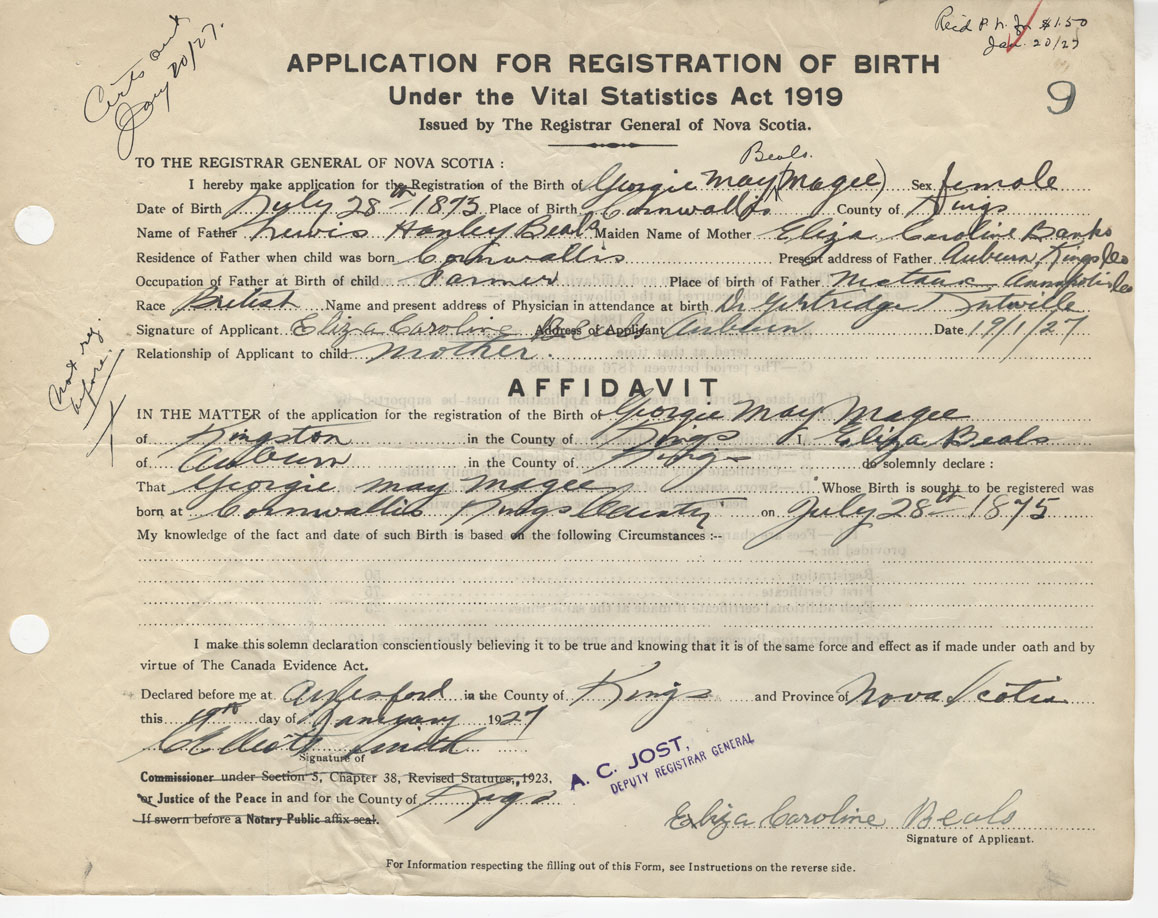 Certs out
Jany 20/27.
Recd P. N. for $1.50
Jan. 20/27
9
APPLICATION FOR REGISTRATION OF BIRTH
Under the Vital Statistics Act 1919
Issued by The Registrar General of Nova Scotia.
TO THE REGISTRAR GENERAL OF NOVA SCOTIA :
Beals.
I hereby make application for the Registration of the Birth of Georgie May (Magee) Sex female
Date of Birth July 28th 1875 Place of Birth Cornwallis County of Kings
Name of Father Lewis Hanley Beals Maiden Name of Mother Eliza Caroline Banks
Residence of Father when child was born Cornwallis Present address of Father Auburn, Kings Co
Occupation of Father at Birth of child Farmer Place of birth of Father Annapolis Co
Race British Name and present address of Physician in attendance at birth Dr
Signature of Applicant Eliza Caroline Beals Address of Applicant Auburn Date 19/1/27
Relationship of Applicant to child Mother.
Not reg.
before.
AFFIDAVIT
IN THE MATTER of the application for the registration of the Birth of Georgie May Magee
of Kingston in the County of Kings I, Eliza Beals
of Auburn in the County of Kings do solemnly declare :
That Georgie May Magee Whose Birth is sought to be registered was
born at Cornwallis Kings County on July 28th 1875
My knowledge of the fact and date of such Birth is based on the following Circumstances :--
I make this solemn declaration conscientiously believing it to be true and knowing that it is of the same force and effect as if made under oath and by
virtue of The Canada Evidence Act.
Declared before me at Aylesford in the County of Kings and Province of Nova Scotia
this 19th day of January 1927
Smith
Signature of
Commissioner under Section 5, Chapter 38, Revised Statutes, 1923,
or Justice of the Peace in and for the County of Kings
If sworn before a Notary Public affix seal.
A. C. JOST,
DEPUTY REGISTRAR GENERAL
Eliza Caroline Beals
Signature of Applicant.
For Information respecting the filling out of this Form, see Instructions on the reverse side.